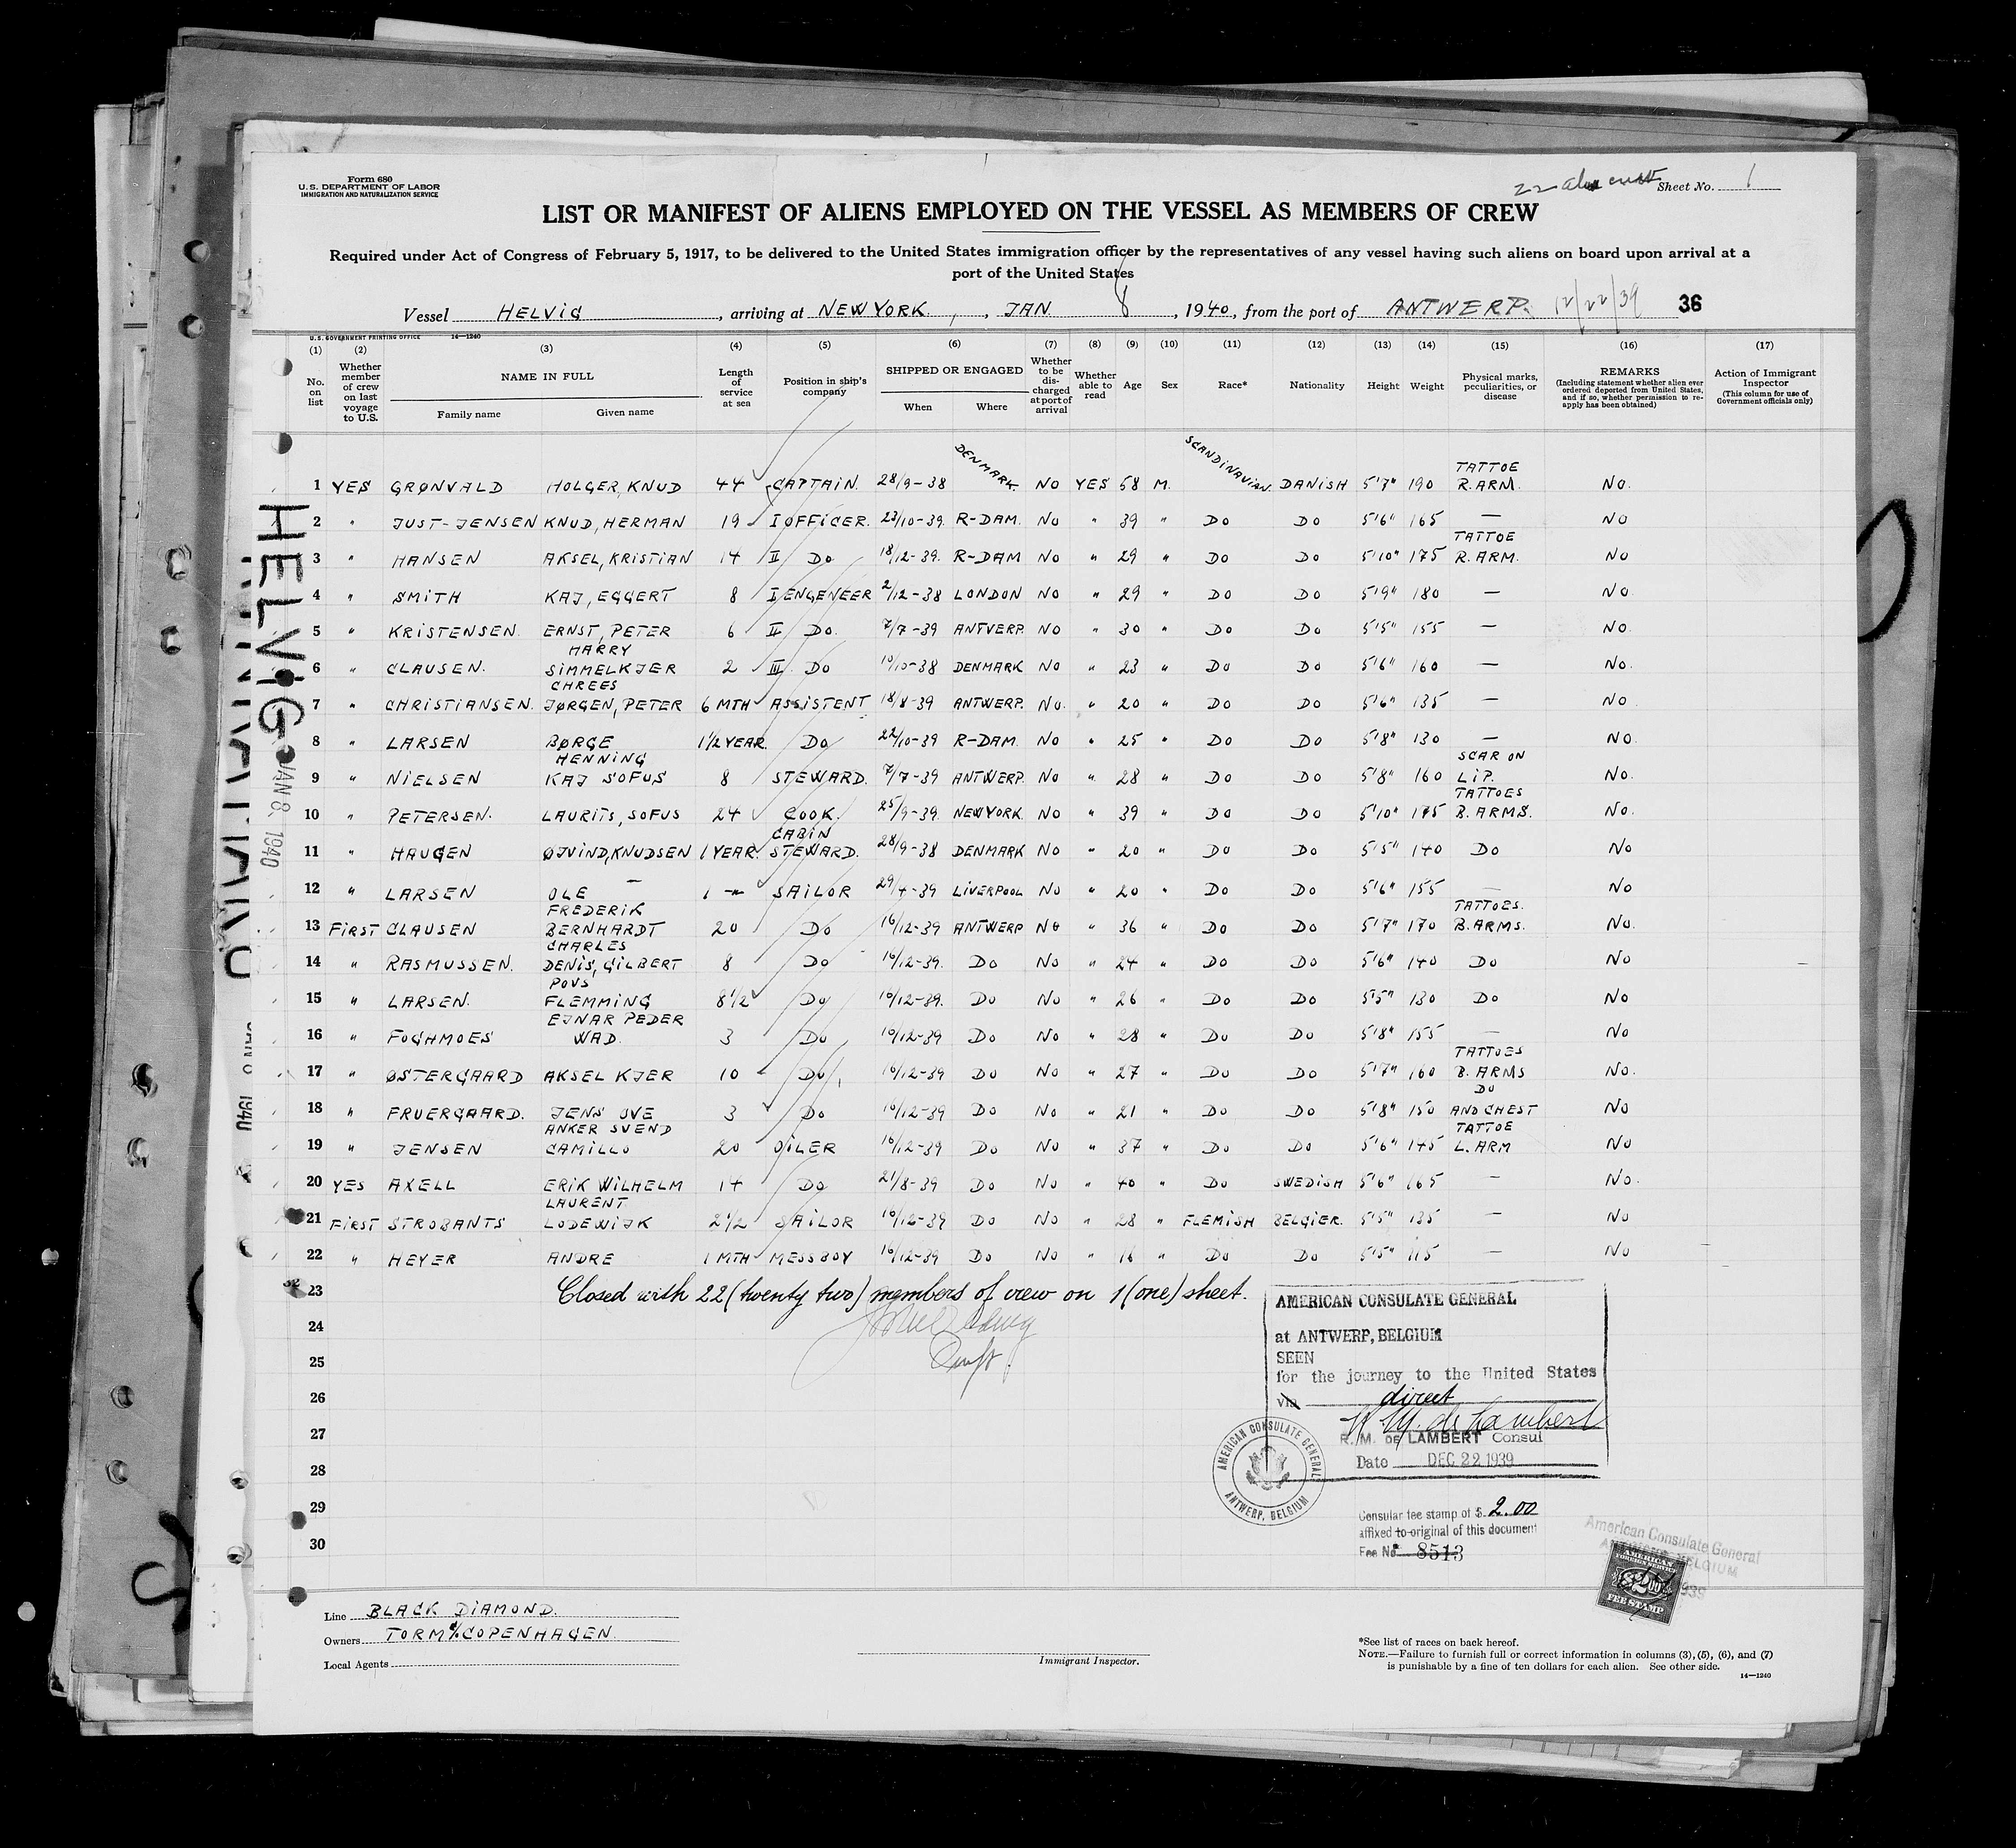 Form 680
U.S. DEPARTMENT OF LABOR
IMMIGRATION AND NATURALIZATION SERVICE
22 Sheet No. 1
LIST OR MANIFEST OF ALIENS EMPLOYED ON THE VESSEL AS MEMBERS OF CREW
Required under Act of Congress of February 5, 1917, to be delivered to the United States immigration officer by the representatives of any vessel having such aliens on board upon arrival at a
port of the United States
Vessel HELVIG, arriving at NEW YORK., JAN. 8, 1940, from the port of ANTWERP. 12/22/39 36
U.S. GOVERNMENT PRINTING OFFICE 14—1240
(1) No. on list
(2) Whether member of crew on last voyage to U.S.
(3) NAME IN FULL Family name Given name
(4) Length of service at sea
(5) Position in ship's company
(6) SHIPPED OR ENGAGED When Where
(7) Whether to be discharged at port of arrival
(8) Whether able to read
(9) Age
(10) Sex
(11) Race*
(12) Nationality
(13) Height
(14) Weight
(15) Physical marks, peculiarities, or disease
(16) REMARKS (Including statement whether alien ever ordered deported from United States, and if so, whether permission to re-apply has been obtained)
(17) Action of Immigrant Inspector (This column for use of Government officials only)
1 YES GRØNVALD HOLGER, KNUD 44 CAPTAIN. 28/9-38 DENMARK. NO YES 58 M. SCANDINAVIAN. DANISH 5'7" 190 TATTOE R. ARM. NO.
2 " JUST-JENSEN KNUD, HERMAN 19 I OFFICER. 23/10-39. R-DAM. NO " 39 " DO DO 5'6" 165 — NO
3 " HANSEN AKSEL, KRISTIAN 14 II DO 18/12-39. R-DAM NO " 29 " DO DO 5'10" 175 TATTOE R. ARM. NO
4 " SMITH KAJ, EGGERT 8 I ENGENEER 2/12-38 LONDON NO " 29 " DO DO 5'9" 180 — NO
5 " KRISTENSEN. ERNST, PETER 6 II DO. 7/7-39 ANTVERP. NO " 30 " DO DO 5'5" 155 — NO.
6 " CLAUSEN. HARRY SIMMELKJER 2 III DO 10/10-38 DENMARK NO " 23 " DO DO 5'6" 160 — NO.
7 " CHRISTIANSEN. CHREES JØRGEN, PETER 6 MTH ASSISTENT 18/8-39 ANTWERP. NO. " 20 " DO DO 5'6" 135 — NO
8 " LARSEN BØRGE 1 1/2 YEAR. DO 22/10-39 R-DAM. NO " 25 " DO DO 5'8" 130 — NO.
9 " NIELSEN HENNING KAJ SOFUS 8 STEWARD. 7/7-39 ANTWERP. NO " 28 " DO DO 5'8" 160 SCAR ON LIP. NO.
10 " PETERSEN. LAURITS, SOFUS 24 COOK. 25/9-39. NEW YORK. NO " 39 " DO DO 5'10" 175 TATTOES B. ARMS. NO.
11 " HAUGEN ØJVIND, KNUDSEN 1 YEAR. CABIN STEWARD. 28/9-38 DENMARK NO " 20 " DO DO 5'5" 140 DO NO
12 " LARSEN OLE — 1 -"- SAILOR 29/4-39 LIVERPOOL NO " 20 " DO DO 5'6" 155 — NO
13 FIRST CLAUSEN FREDERIK BERNHARDT 20 DO 16/12-39 ANTWERP NO " 36 " DO DO 5'7" 170 TATTOES. B. ARMS. NO.
14 " RASMUSSEN. CHARLES DENIS, GILBERT 8 DO 16/12-39. DO NO " 24 " DO DO 5'6" 140 DO NO
15 " LARSEN. POVS FLEMMING 8 1/2 DO 16/12-39. DO NO " 26 " DO DO 5'5" 130 DO NO
16 " FOGHMOES EJNAR PEDER WAD. 3 DO 16/12-39 DO NO " 28 " DO DO 5'8" 155 — NO
17 " ØSTERGAARD AKSEL KJER 10 DO 16/12-39 DO NO " 27 " DO DO 5'7" 160 TATTOES B. ARMS NO.
18 " FRUERGAARD. JENS OVE 3 DO 16/12-39 DO NO " 21 " DO DO 5'8" 150 DO AND CHEST NO
19 " JENSEN ANKER SVEND CAMILLO 20 OILER 16/12-39 DO NO " 37 " DO DO 5'6" 145 TATTOE L. ARM NO
20 YES AXELL ERIK WILHELM 14 DO 21/8-39 DO NO " 40 " DO SWEDISH 5'6" 165 — NO.
21 FIRST STROBANTS LAURENT LODEWIJK 2 1/2 SAILOR 16/12-39 DO NO " 28 " FLEMISH BELGIER. 5'5" 135 — NO
22 " HEYER ANDRE 1 MTH MESSBOY 16/12-39 DO NO " 16 " DO DO 5'5" 115 — NO
23 Closed with 22 (twenty two) members of crew on 1 (one) sheet.
24
25
26
27
28
29
30
AMERICAN CONSULATE GENERAL
at ANTWERP, BELGIUM
SEEN
for the journey to the United States
via direct
R. M. de Lambert
R. M. DE LAMBERT Consul
Date DEC 22 1939
AMERICAN CONSULATE GENERAL
ANTWERP, BELGIUM
Consular fee stamp of $ 2.00
affixed to original of this document
Fee No. 8513
American Consulate General
AMERICAN
FOREIGN SERVICE
$2.00
FEE STAMP
Line BLACK DIAMOND.
Owners TORM % COPENHAGEN.
Local Agents
Immigrant Inspector.
*See list of races on back hereof.
NOTE.—Failure to furnish full or correct information in columns (3), (5), (6), and (7)
is punishable by a fine of ten dollars for each alien. See other side.
14—1240
HELVIG
JAN 8. 1940
1940